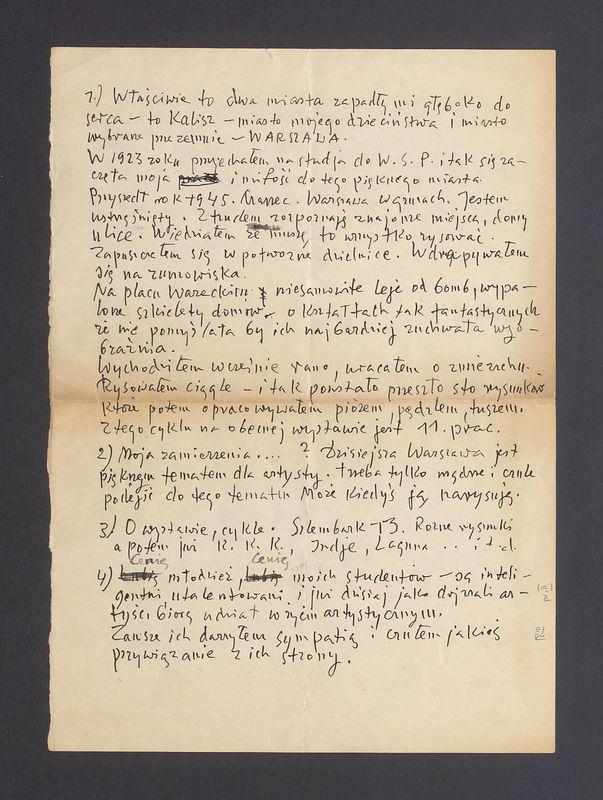 1.) Właściwie to dwa miasta zapadły mi głęboko do
serca – to Kalisz – miasto mojego dzieciństwa i miasto
wybrane przezemnie – WARSZAWA.
W 1923 roku przyjechałem na studja do W. S. P. i tak się za-
częła moja i miłość do tego pięknego miasta.
Przyszedł rok 1945. Marzec. Warszawa w gruzach. Jestem
wstrząśnięty. Z trudem rozpoznaję znajome miejsca, domy
ulice. Wiedziałem że muszę to wszystko rysować.
Zapuszczałem się w potworne dzielnice. Wdrapywałem
się na rumowiska.
Na placu Wareckim niesamowite leje od bomb, wypa-
lone szkielety domów – o kształtach tak fantastycznych
że nie pomyślała by ich najbardziej zuchwała wyo-
braźnia.
Wychodziłem wcześnie rano, wracałem o zmierzchu.
Rysowałem ciągle – i tak powstało przeszło sto rysunków
które potem opracowywałem piórem, pędzlem, tuszem.
Z tego cyklu na obecnej wystawie jest 11. prac.
2) Moja zamierzenia .... ? Dzisiejsza Warszawa jest
pięknym tematem dla artysty. Trzeba tylko mądrze i czule
podejść do tego tematu Może kiedyś ją narysuję.
3) O wystawie, cykle. Szlembark – 73. Rożne rysunki
a potem już R. R. R., Indje, Laguna .. i t.d.
Cenię Cenię
4) Lubię młodzież Lubię moich studentów – są inteli-
gentni utalentowani i już dzisiaj jako dojrzali ar-
tyści biorą udział w życiu artystycznym.
Zawsze ich darzyłem sympatią i czułem jakieś
przywiązanie z ich strony.